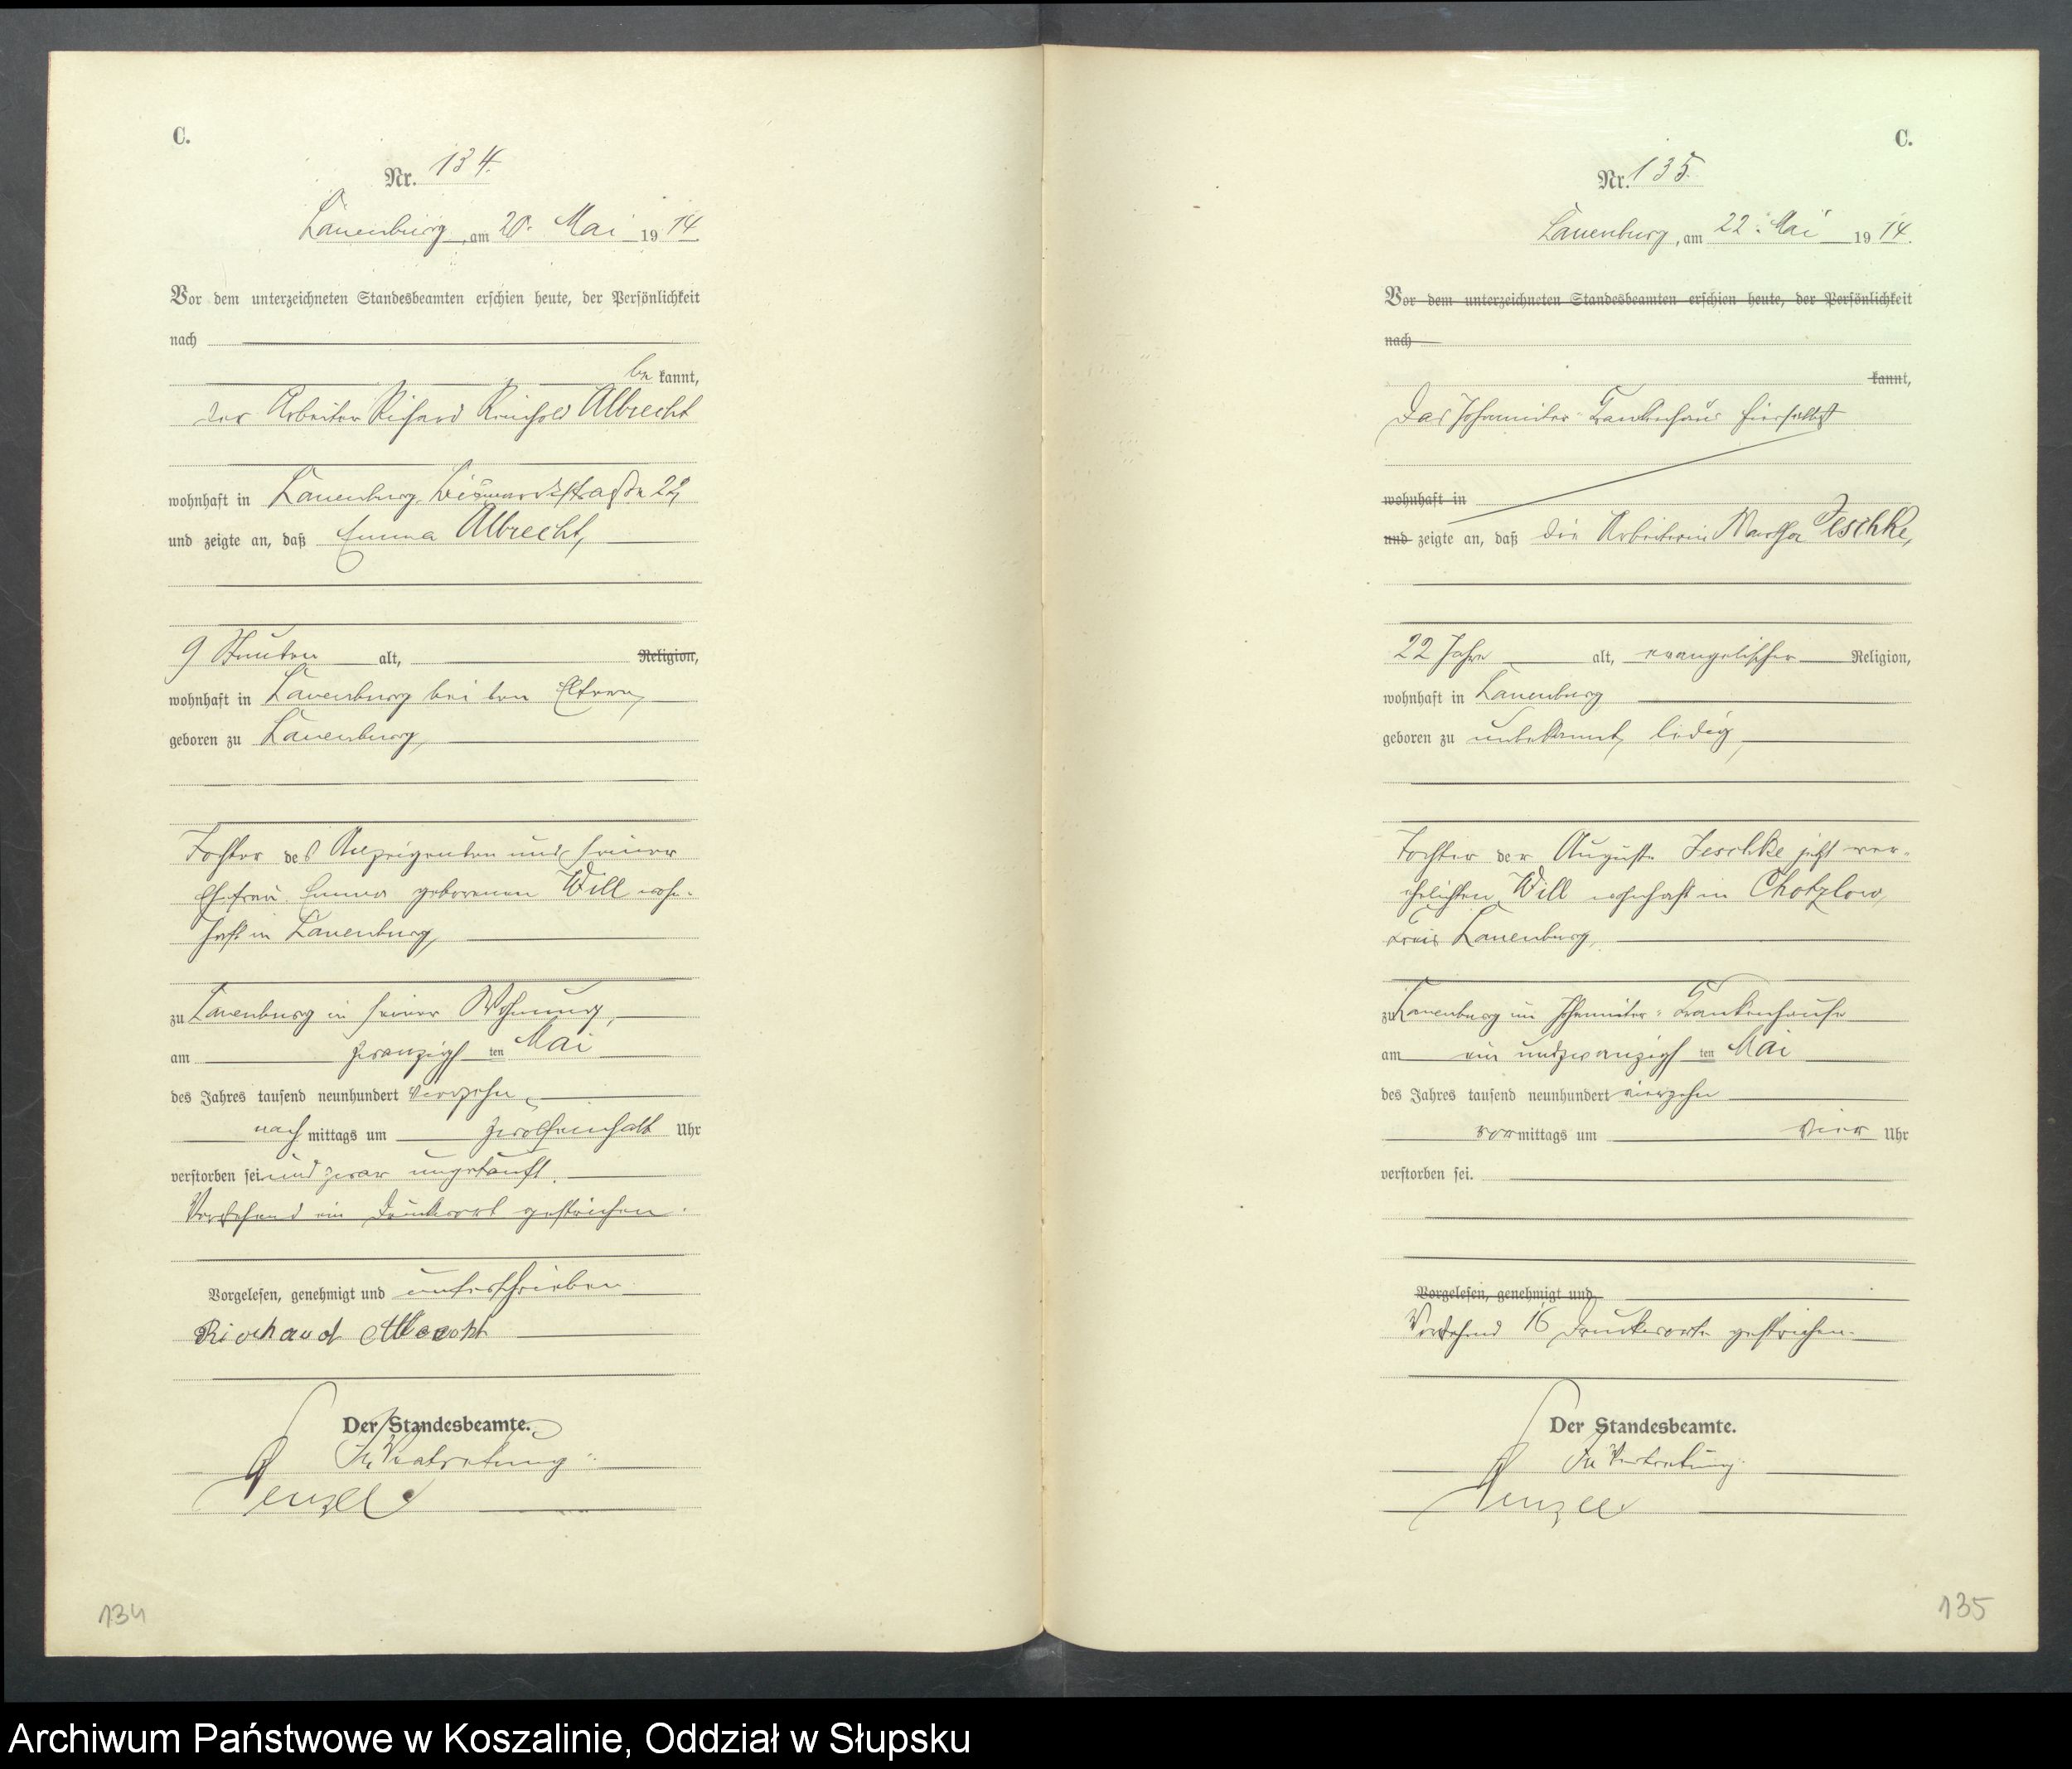 C.
Nr. 134.
Lauenburg, am 20. Mai 1914.
Vor dem unterzeichneten Standesbeamten erschien heute, der Persönlichkeit
nach
be kannt,
der Arbeiter Richard Reinhold Albrecht
wohnhaft in Lauenburg, Bismarckstraße 22,
und zeigte an, daß Emma Albrecht,
9 Stunden alt, Religion,
wohnhaft in Lauenburg bei den Eltern,
geboren zu Lauenburg,
Tochter des Anzeigenden und seiner
Ehefrau Emma geborenen Will wohn-
haft in Lauenburg,
zu Lauenburg in seiner Wohnung,
am zwanzigsten Mai
des Jahres tausend neunhundert vierzehn
nach mittags um zwölfeinhalb Uhr
verstorben sei und zwar ungetauft.
Vorstehend ein Druckwort gestrichen.
Vorgelesen, genehmigt und unterschrieben
Richard Albrecht
Der Standesbeamte.
In Vertretung:
134
C.
Nr. 135.
Lauenburg, am 22. Mai 1914.
Vor dem unterzeichneten Standesbeamten erschien heute, der Persönlichkeit
nach
kannt,
Das Johanniter-Krankenhaus hierselbst
wohnhaft in
und zeigte an, daß die Arbeiterin Martha Jeschke,
22 Jahre alt, evangelischer Religion,
wohnhaft in Lauenburg
geboren zu unbekannt, ledig,
Tochter der Auguste Jeschke jetzt ver-
ehelichten Will wohnhaft in Chotzlow,
Kreis Lauenburg,
zu Lauenburg im Johanniter-Krankenhause
am ein undzwanzigsten Mai
des Jahres tausend neunhundert vierzehn
vor mittags um vier Uhr
verstorben sei.
Vorgelesen, genehmigt und
Vorstehend 16 Druckworte gestrichen.
Der Standesbeamte.
In Vertretung:
135
Archiwum Państwowe w Koszalinie, Oddział w Słupsku